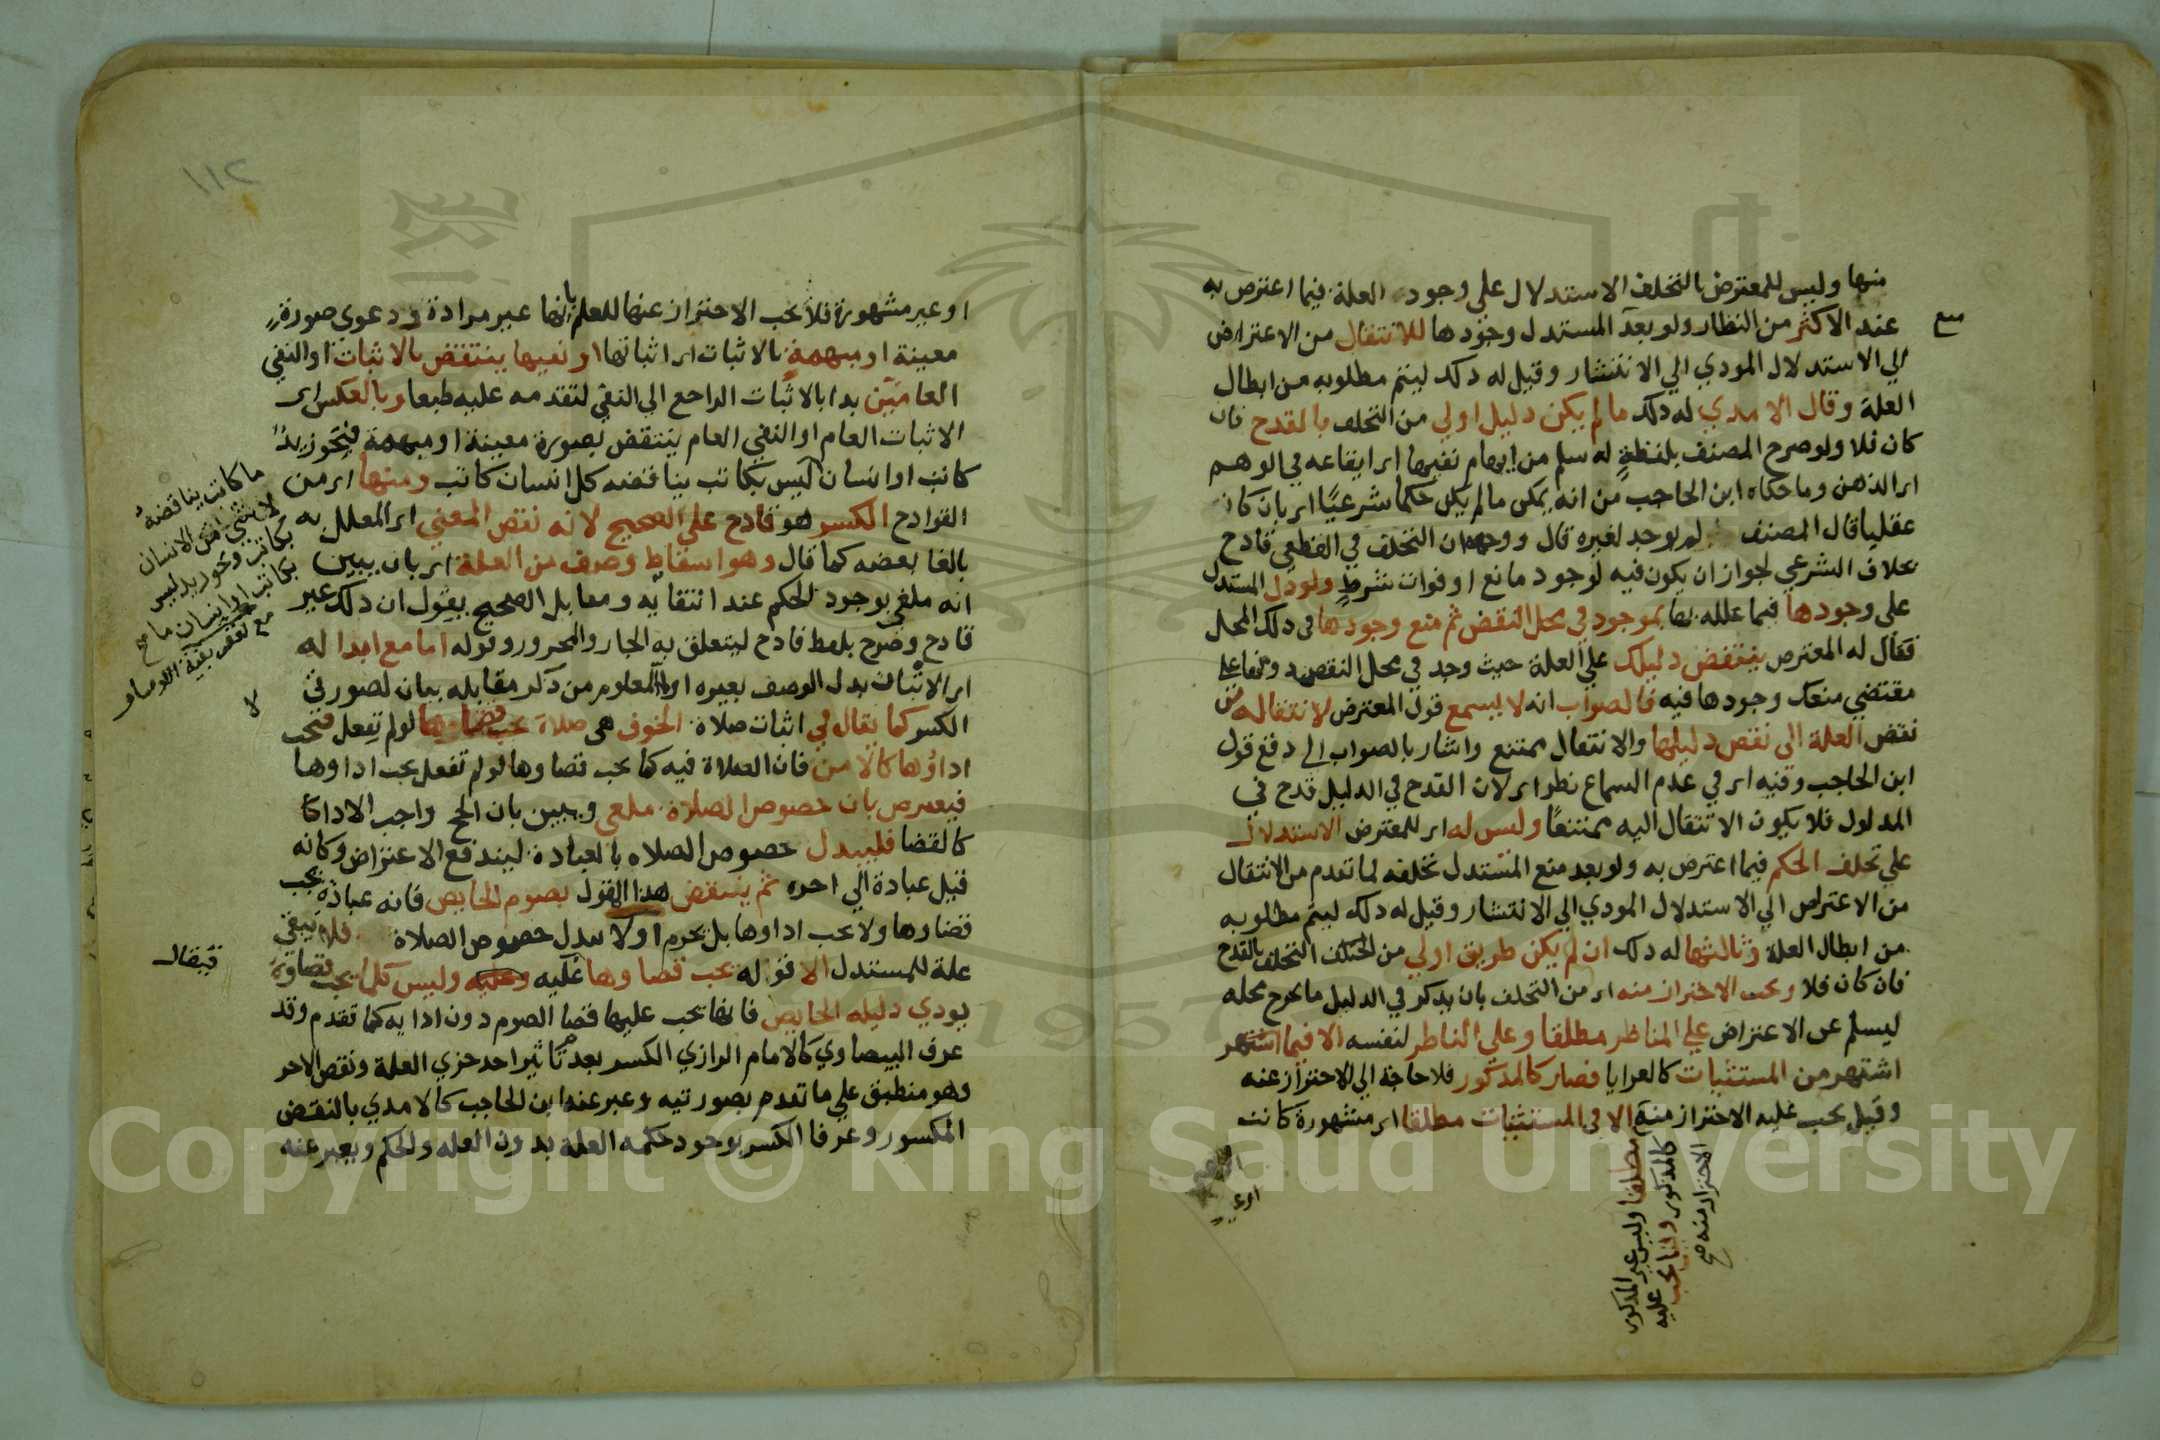 منها وليس للمعترض بالتخلف الاستدلال علي وجود العلة فيما اعترض به
عند الاكثر من النظار ولو بعد المستدل وجودها للانتقال من الاعتراض
منع
الي الاستدلال المودي الي الانتشار وقيل له ذلك ليتم مطلوبه من ابطال
العلة وقال الامدي له ذلك ما لم يكن دليل اولي من التخلف بالقدح فان
كان فلا ولو صرح المصنف بلفظة له سلم من ايهام نفيها اي ايقاعه في الوهم
اي الذهن وما حكاه ابن الحاجب من انه يمكن ما لم يكن حكما شرعيًا اي بان كان
عقليا قال المصنف لم يوجد لغيره قال ووجهه ان التخلف في القطعي قادح
بخلاف الشرعي لجواز ان يكون فيه لوجود مانع او فوات شرط ولو دل المستدل
علي وجودها فيما علله بها بموجود في محل النقض ثم منع وجودها في ذلك المحل
فقال له المعترض ينتقض دليلك علي العلة حيث وجد في محل النقض دونها علي
مقتضي منعك وجودها فيه فالصواب انه لا يسمع قول المعترض لانتقاله من
نقض العلة الي نقض دليلها والانتقال ممتنع واشار بالصواب الي دفع قول
ابن الحاجب وفيه اي في عدم السماع نظر اي لان القدح في الدليل قدح في
المدلول فلا يكون الانتقال اليه ممتنعًا وليس له اي للمعترض الاستدلال
علي تخلف الحكم فيما اعترض به ولو بعد منع المستدل تخلفه لما تقدم من الانتقال
من الاعتراض الي الاستدلال المودي الي الانتشار وقيل له ذلك ليتم مطلوبه
من ابطال العلة وثالثها له ذلك ان لم يكن طريق اولي من التخلف بالقدح
فان كان فلا ويجب الاحتراز منه اي من التخلف بان يذكر في الدليل ما يخرج محله
ليسلم عن الاعتراض علي المناظر مطلقا وعلي الناظر لنفسه الا فيما اشتهر
اشتهر من المستثنيات كالعرايا فصار كالمذكور فلا حاجة الي الاحتراز عنه
وقيل يجب عليه الاحتراز منه الا في المستثنيات مطلقا اي مشهورة كانت
مطلقا وليس غير المذكور
كالمذكور وقيل يجب عليه
الاحتراز منه صح
او غير
١١٢
او غير مشهورة فلا يجب الاحتراز عنها للعلم بانها غير مرادة ودعوي صورة
معينة او مبهمة بالاثبات اي اثباتها او نفيها ينتقض بالاثبات او النفي
العامين بدا بالاثبات الراجع الي النفي لتقدمه عليه طبعا وبالعكس اي
الاثبات العام او النفي العام ينتقض بصورة معينة او مبهمة فنحو زيد
كاتب او انسان ليس بكاتب يناقضه كل انسان كاتب ومنها اي من
القوادح الكسر هو قادح علي الصحيح لانه نقض المعني اي المعلل به
بالغا بعضه كما قال وهو اسقاط وصف من العلة اي بان يبين
انه ملغي بوجود الحكم عند انتفايه ومقابل الصحيح يقول ان ذلك غير
قادح وصرح بلفظ قادح ليتعلق به الجار والمجرور وقوله اما مع ابداله
اي الاتيان بدل الوصف بغيره او لا المعلوم من ذكر مقابله بيان لصورتي
الكسر كما يقال في اثبات صلاة الخوف هي صلاة يجب قضاوها لو لم تفعل فيجب
اداؤها كالامن فان الصلاة فيه كما يجب قضاوها لو لم تفعل يجب اداوها
فيعترض بان خصوص الصلاة ملغي ويبين بان الحج واجب الادا كا
كالقضا فليبدل خصوص الصلاه بالعبادة ليندفع الاعتراض وكانه
قيل عبادة الي اخره ثم ينتقض هذا القول بصوم الحايض فانه عبادة يجب
قضاوها ولا يجب اداوها بل يحرم او لا يبدل خصوص الصلاة فلا يبقي
علة للمستدل الا قوله يجب قضاوها عليه وليس كل ما يجب قضاوه
فيقال
يودي دليله الحايض فانها يجب عليها قضا الصوم دون ادايه كما تقدم وقد
عرف البيضاوي كالامام الرازي الكسر بعدم تاثير احد جزي العلة ونقض الاخر
وهو منطبق علي ما تقدم بصورتيه وعبر عنه ابن الحاجب كالامدي بالنقض
المكسور وعرفا الكسر بوجود حكمه العلة بدون العله والحكم ويعبر عنه
ما كاتب يناقضه
لا شي من الانسان
بكاتب ونحو زيد ليس
بكاتب او انسان ما صح
Copyright © King Saud University
1957